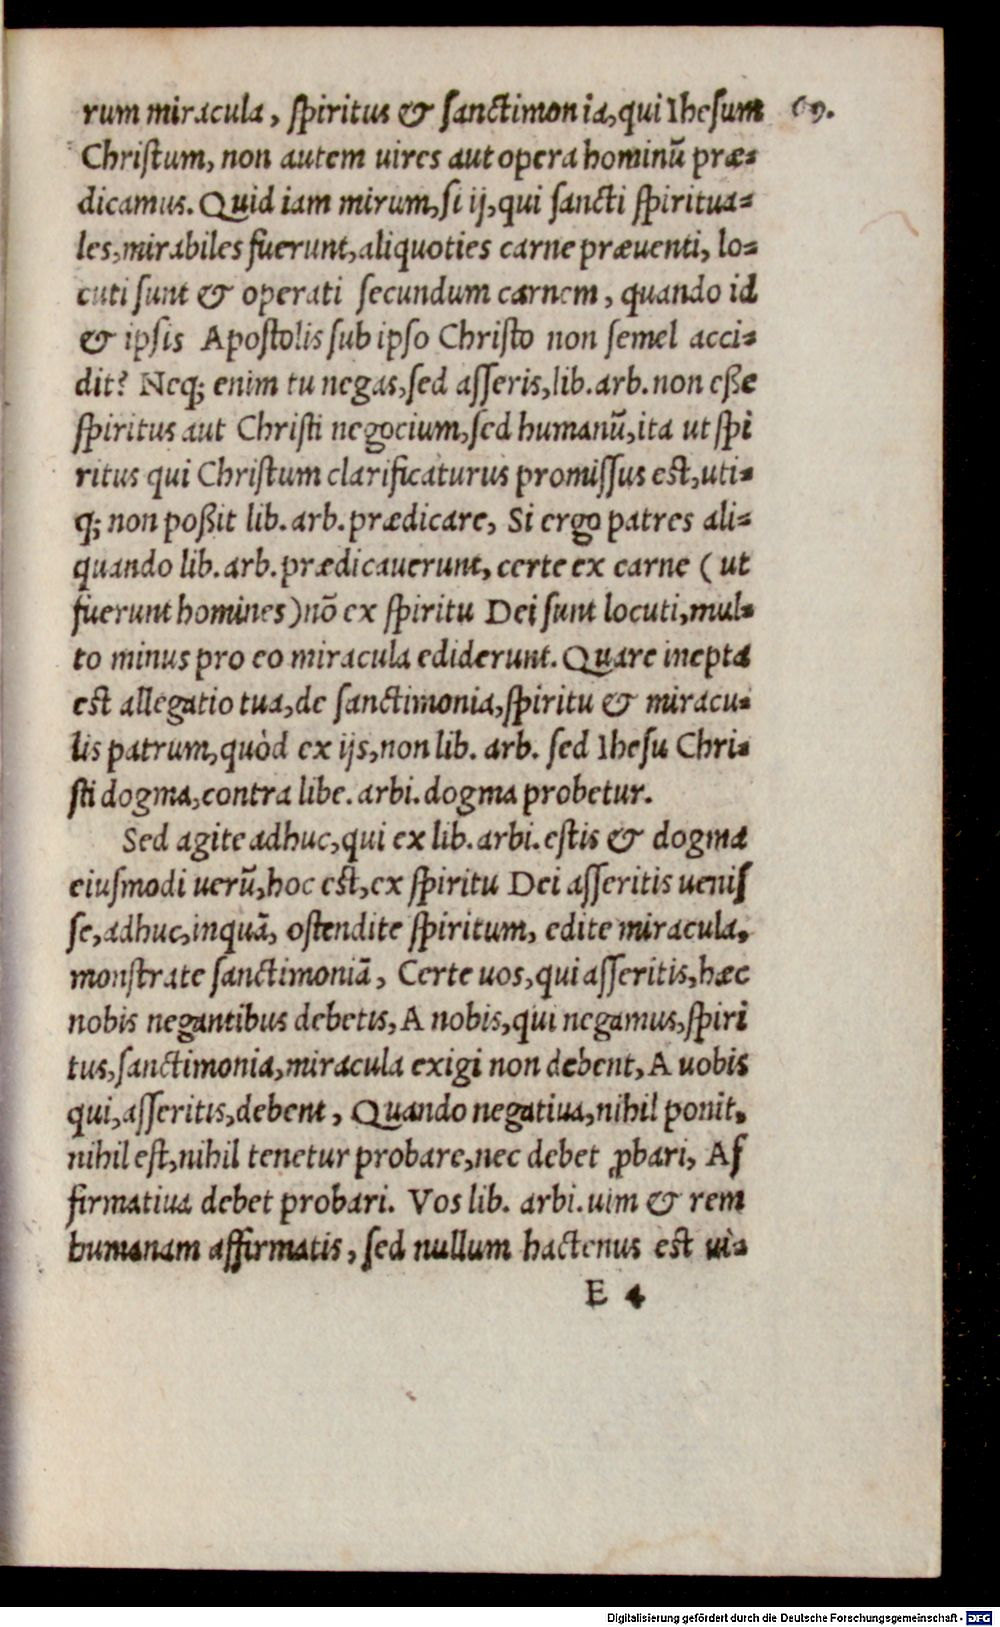 rum miracula, ſpiritus & ſanctimonia, qui Iheſum
69.
Chriſtum, non autem uires aut opera hominū præ=
dicamus. Quid iam mirum, ſi ij, qui ſancti ſpiritua=
les, mirabiles fuerunt, aliquoties carne præuenti, lo=
cuti ſunt & operati ſecundum carnem, quando id
& ipſis Apoſtolis ſub ipſo Chriſto non ſemel acci=
dit? Neq; enim tu negas, ſed aſſeris, lib. arb. non eße
ſpiritus aut Chriſti negocium, ſed humanū, ita ut ſpi
ritus qui Chriſtum clarificaturus promiſſus eſt, uti=
q; non poßit lib. arb. prædicare, Si ergo patres ali=
quando lib. arb. prædicauerunt, certe ex carne (ut
fuerunt homines) nō ex ſpiritu Dei ſunt locuti, mul=
to minus pro eo miracula ediderunt. Quare inepta
eſt allegatio tua, de ſanctimonia, ſpiritu & miracu=
lis patrum, quòd ex ijs, non lib. arb. ſed Iheſu Chri=
ſti dogma, contra libe. arbi. dogma probetur.
Sed agite adhuc, qui ex lib. arbi. eſtis & dogma
eiuſmodi uerū, hoc eſt, ex ſpiritu Dei aſſeritis ueniſ
ſe, adhuc, inquā, oſtendite ſpiritum, edite miracula,
monſtrate ſanctimoniā, Certe uos, qui aſſeritis, hæc
nobis negantibus debetis, A nobis, qui negamus, ſpiri
tus, ſanctimonia, miracula exigi non debent, A uobis
qui, aſſeritis, debent, Quando negatiua, nihil ponit,
nihil eſt, nihil tenetur probare, nec debet ꝓbari, Aſ
firmatiua debet probari. Vos lib. arbi. uim & rem
humanam affirmatis, ſed nullum hactenus eſt ui=
E 4
Digitalisierung gefördert durch die Deutsche Forschungsgemeinschaft - DFG